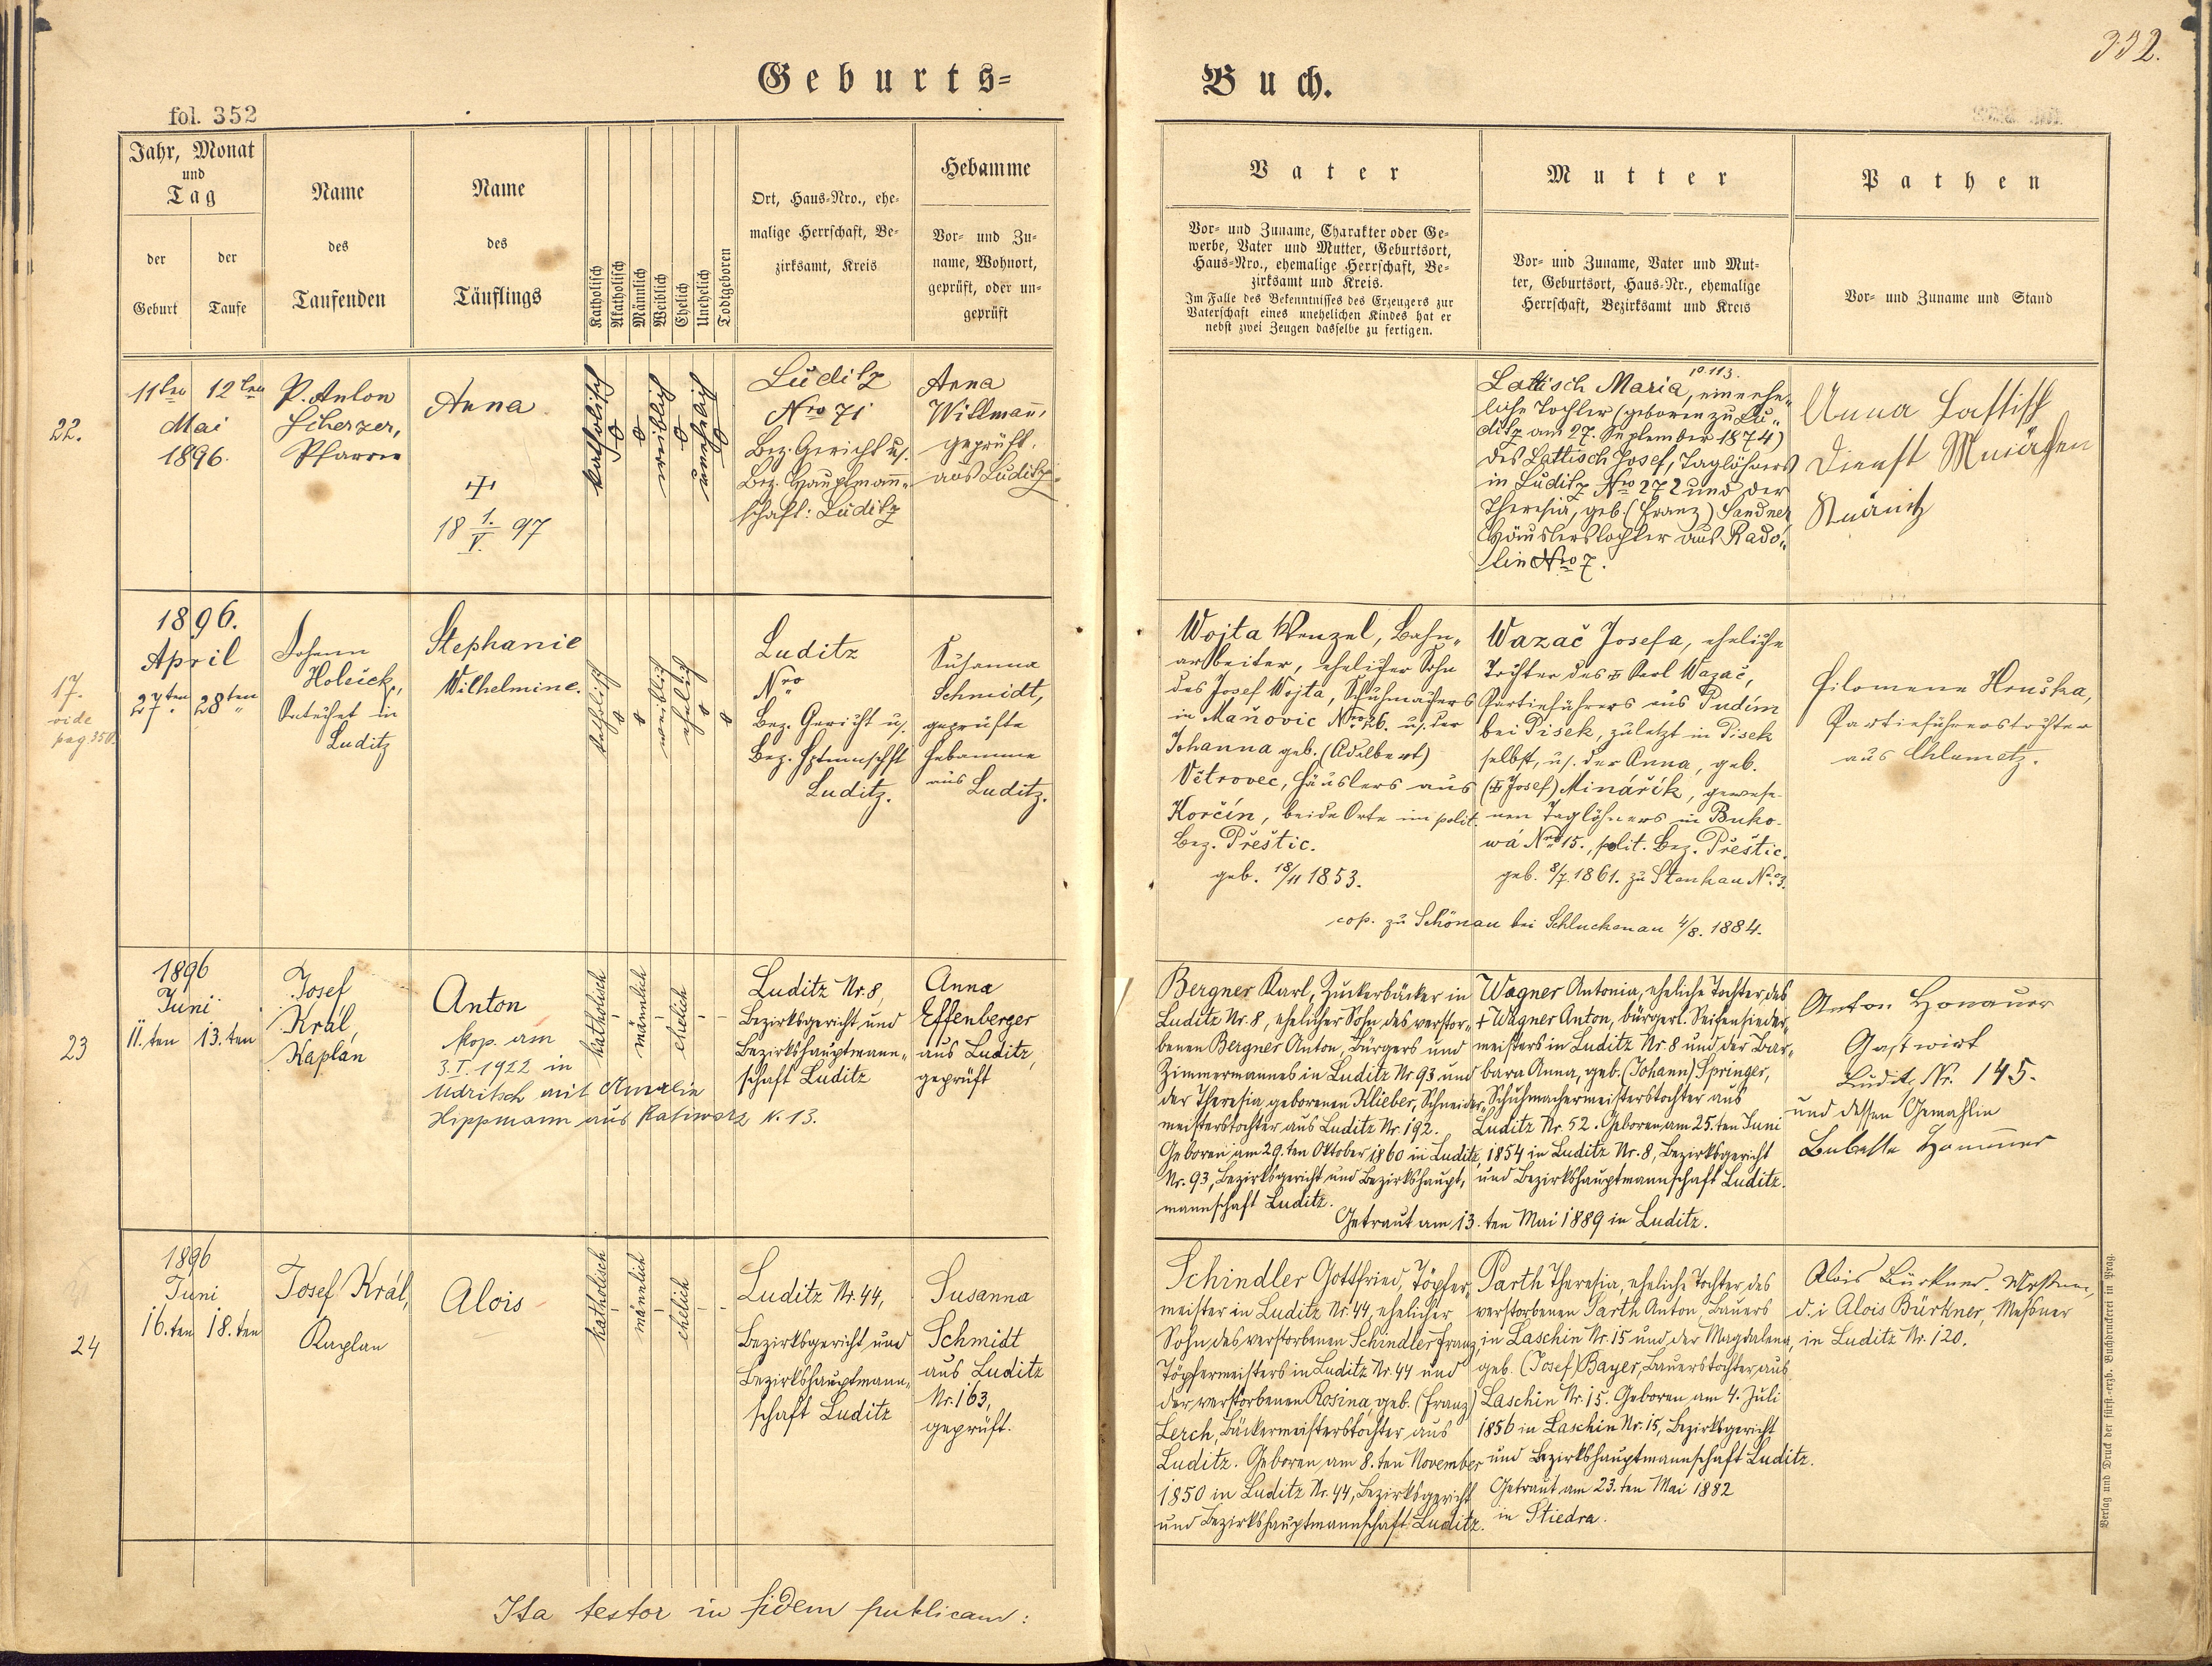 Geburts=
fol. 352
Jahr, Monat
und
Tag
der
Geburt
der
Taufe
Name
des
Taufenden
Name
des
Täuflings
Katholisch
Akatholisch
Männlich
Weiblich
Ehelich
Unehelich
Todtgeboren
Ort, Haus=Nro., ehe=
malige Herrschaft, Be=
zirksamt, Kreis
Hebamme
Vor= und Zu=
name, Wohnort,
geprüft, oder un=
geprüft
22.
11ten 12ten
Mai
1896.
P. Anton
Scherzer,
Pfarrer
Anna
18 1./V. 97
katholisch
weiblich
unehelich
Luditz
Nro 71
Bez. Gericht u.
Bez. Hauptmann„
schaft: Luditz
Anna
Willmann,
geprüft,
aus Luditz
17.
vide
pag 350.
1896.
April
27ten 28ten
Johann
Holeick,
Katechet in
Luditz
Stephanie
Wilhelmine.
katholisch
weiblich
ehelich
Luditz
Nro
Bez. Gericht u.
Bez. Hptmnschft
Luditz.
Susanna
Schmidt,
geprüfte
Hebamme
aus Luditz.
23
1896
Juni
11.ten 13.ten
Josef
Král,
Kaplan
Anton
kop. am
3. I. 1922 in
Udritsch mit Amalia
Hippmann aus Ratiworz N. 13.
katholisch
männlich
ehelich
Luditz Nr. 8,
Bezirksgericht und
Bezirkshauptmann„
schaft Luditz
Anna
Effenberger
aus Luditz,
geprüft
24
1896
Juni
16.ten 18.ten
Josef Král,
Kaplan
Alois
katholisch
männlich
ehelich
Luditz Nr. 44,
Bezirksgericht und
Bezirkshauptmann„
schaft Luditz
Susanna
Schmidt
aus Luditz
Nr. 163,
geprüft.
Ita testor in fidem publicam:
Buch.
332.
Vater
Vor= und Zuname, Charakter oder Ge=
werbe, Vater und Mutter, Geburtsort,
Haus=Nro., ehemalige Herrschaft, Be=
zirksamt und Kreis.
Im Falle des Bekenntnisses des Erzeugers zur
Vaterschaft eines unehelichen Kindes hat er
nebst zwei Zeugen dasselbe zu fertigen.
Mutter
Vor= und Zuname, Vater und Mut=
ter, Geburtsort, Haus=Nr., ehemalige
Herrschaft, Bezirksamt und Kreis
Pathen
Vor= und Zuname und Stand
10.113.
Lattisch Maria, eine ehe„
liche Tochter (geboren zu Lu„
ditz am 27. September 1874)
des Lattisch Josef, Taglöhners
in Luditz Nro 272 und der
Theresia, geb. (Franz) Sandner
Häuslerstochter aus Rado„
lin Nro 7.
Anna Lattisch
Dienst
Wojta Wenzel, Bahn„
arbeiter, ehelicher Sohn
des Josef Wojta, Schuhmachers
in Maňovic Nro 26. u. der
Johanna geb. (Adalbert)
Větrovec, Häuslers aus
Korčín, beide Orte im polit.
Bez. Přeštic.
geb. 18/11 1853.
Wazač Josefa, eheliche
Tochter des Karl Wazač,
Partieführers aus Pudím
bei Pisek, zuletzt in Pisek
selbst, u. der Anna, geb.
(Josef) Minářík, gewese
nen Taglöhners in Buko-
wá Nro 15., polit. Bez. Přeštic.
geb. 8/7. 1861. zu Stankau No. 3.
cop. zu Schönau bei Schluckenau 4/8. 1884.
Filomene Hruska,
Partieführerstochter
aus Chlumetz.
Bergner Karl, Zuckerbäcker in
Luditz Nr. 8, ehelicher Sohn des verstor„
benen Bergner Anton, Bürgers und
Zimmermannes in Luditz Nr. 93 und
der Theresia geborenen Klieber, Schneider„
meisterstochter aus Luditz Nr. 192.
Geboren am 29.ten Oktober 1860 in Luditz,
Nr. 93, Bezirksgericht und Bezirkshaupt„
mannschaft Luditz.
Wagner Antonia, eheliche Tochter des
+ Wagner Anton, bürgerl. Seifensieder„
meisters in Luditz Nr. 8 und der Bar„
bara Anna, geb. (Johann) Springer,
Schuhmachermeisterstochter aus
Luditz Nr. 52. Geboren am 25.ten Juni
1854 in Luditz Nr. 8, Bezirksgericht
und Bezirkshauptmannschaft Luditz.
Getraut am 13.ten Mai 1889 in Luditz.
Anton Honauer
Gastwirt
Luditz Nr. 145.
und dessen Gemahlin
Schindler Gottfried, Töpfer„
meister in Luditz Nr. 44, ehelicher
Sohn des verstorbenen Schindler Franz,
Töpfermeisters in Luditz Nr. 44 und
der verstorbenen Rosina, geb. (Franz)
Lerch, Bäckermeisterstochter aus
Luditz. Geboren am 8.ten November
1850 in Luditz Nr. 44, Bezirksgericht
und Bezirkshauptmannschaft Luditz.
Parth Theresia, eheliche Tochter des
verstorbenen Parth Anton Bauers
in Laschin Nr. 15 und der Magdalena,
geb. (Josef) Bayer, Bauerstochter aus
Laschin Nr. 15. Geboren am 4. Juli
1856 in Laschin Nr. 15, Bezirksgericht
und Bezirkshauptmannschaft Luditz.
Getraut am 23.ten Mai 1882
in Stiedra.
Alois Bürkner
d. i Alois Bürkner, Meßner
in Luditz Nr. 120.
Verlag und Druck der fürst.=erzb. Buchdruckerei in Prag.